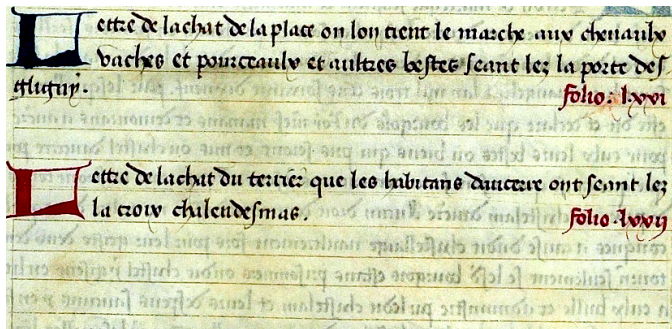 Lettre de lachat de la place ou lon tient le marche aux chevaulx
vaches et pourceaulx et aultres bestes seant lez la porte des
gliguy.
folio. lxxi
Lettre de lachat du terrier que les habitans daucerre ont seant lez
la croix chaleudesmas.
folio. lxxij